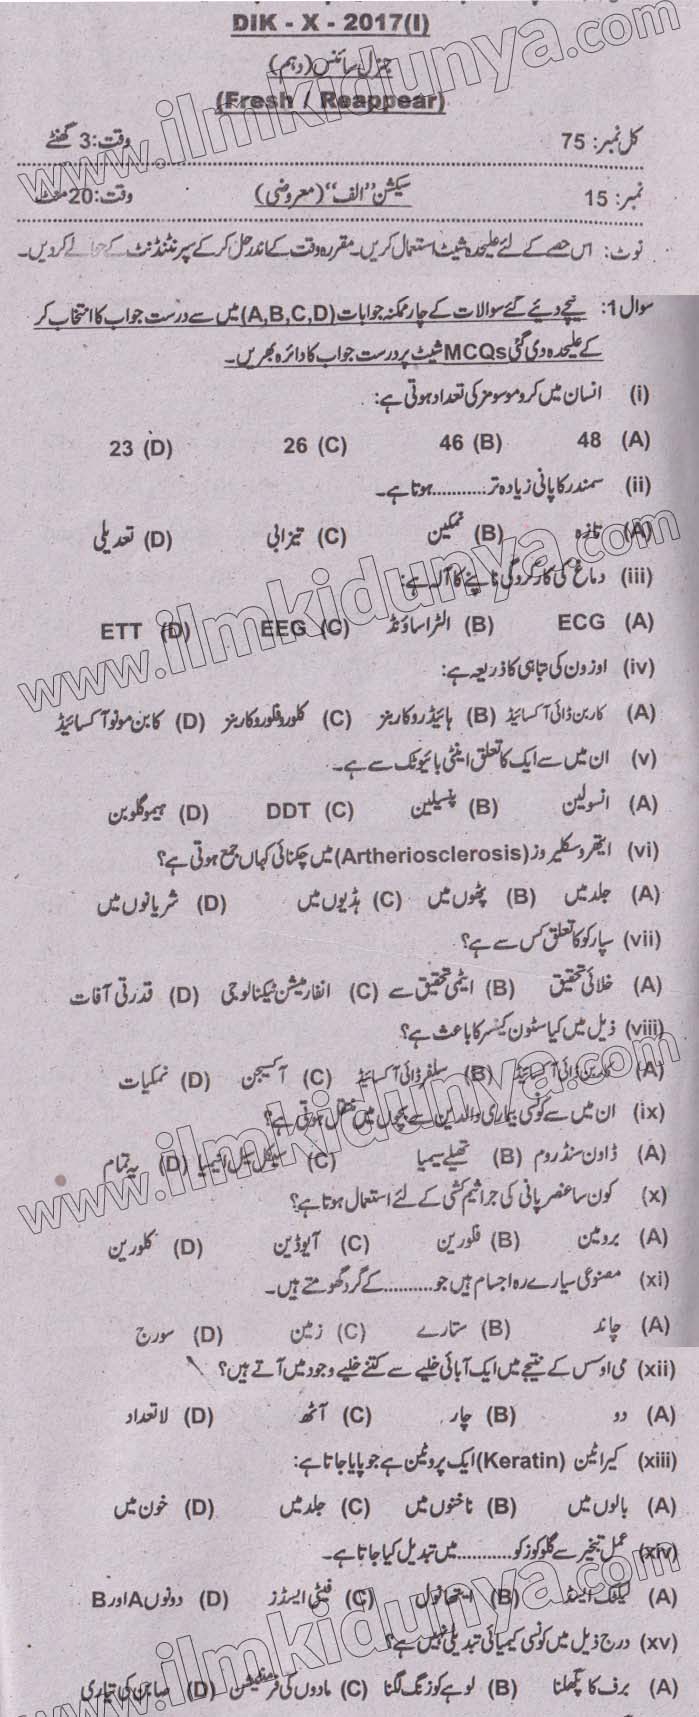 DIK - X - 2017(I)
جنرل سائنس (دہم)
(Fresh / Reappear)
کل نمبر: 75 وقت: 3 گھنٹے
نمبر: 15 سیکشن "الف" (معروضی) وقت: 20 منٹ
نوٹ: اس حصے کے لئے علیحدہ شیٹ استعمال کریں۔ مقررہ وقت کے اندر حل کر کے سپرنٹنڈنٹ کے حوالے کر دیں۔
سوال 1: نیچے دیئے گئے سوالات کے چار ممکنہ جوابات (A,B,C,D) میں سے درست جواب کا انتخاب کر
کے علیحدہ دی گئی MCQs شیٹ پر درست جواب کا دائرہ بھریں۔
(i) انسان میں کروموسومز کی تعداد ہوتی ہے:
(A) 48 (B) 46 (C) 26 (D) 23
(ii) سمندر کا پانی زیادہ تر...........ہوتا ہے۔
(A) تازہ (B) نمکین (C) تیزابی (D) تعدیلی
(iii) دماغ کی کارکردگی ناپنے کا آلہ ہے:
(A) ECG (B) الٹراساؤنڈ (C) EEG (D) ETT
(iv) اوزون کی تباہی کا ذریعہ ہے:
(A) کاربن ڈائی آکسائیڈ (B) ہائیڈروکاربنز (C) کلوروفلوروکاربنز (D) کابن مونوآکسائیڈ
(v) ان میں سے ایک کا تعلق اینٹی بائیوٹک سے ہے۔
(A) انسولین (B) پنسیلین (C) DDT (D) ہیموگلوبن
(vi) ایتھروسکلیروز (Artheriosclerosis) میں چکنائی کہاں جمع ہوتی ہے؟
(A) جلد میں (B) پٹھوں میں (C) ہڈیوں میں (D) شریانوں میں
(vii) سپارکو کا تعلق کس سے ہے؟
(A) خلائی تحقیق (B) ایٹمی تحقیق سے (C) انفارمیشن ٹیکنالوجی (D) قدرتی آفات
(viii) ذیل میں کیا سٹون کینسر کا باعث ہے؟
(A) کاربن ڈائی آکسائیڈ (B) سلفر ڈائی آکسائیڈ (C) آکسیجن (D) نمکیات
(ix) ان میں سے کونسی بیماری والدین سے بچوں میں منتقل ہوتی ہے؟
(A) ڈاون سنڈروم (B) تھیلے سیمیا (C) سیکل سیل انیمیا (D) یہ تمام
(x) کون سا عنصر پانی کی جراثیم کشی کے لئے استعمال ہوتا ہے؟
(A) برومین (B) فلورین (C) آیوڈین (D) کلورین
(xi) مصنوعی سیارے وہ اجسام ہیں جو..........کے گرد گھومتے ہیں۔
(A) چاند (B) ستارے (C) زمین (D) سورج
(xii) می اوسس کے نتیجے میں ایک آبائی خلیے سے کتنے خلیے وجود میں آتے ہیں؟
(A) دو (B) چار (C) آٹھ (D) لاتعداد
(xiii) کیراٹین (Keratin) ایک پروٹین ہے جو پایا جاتا ہے:
(A) بالوں میں (B) ناخنوں میں (C) جلد میں (D) خون میں
(xiv) عمل تبخیر سے گلوکوز کو...........میں تبدیل کیا جاتا ہے۔
(A) لیکٹک ایسڈ (B) ایتھانول (C) فیٹی ایسڈز (D) دونوں A اور B
(xv) درج ذیل میں کونسی کیمیائی تبدیلی نہیں ہے؟
(A) برف کا پگھلنا (B) لوہے کو زنگ لگنا (C) مادوں کی فرمنٹیشن (D) صابن کی تیاری
www.ilmkidunya.com
www.ilmkidunya.com
www.ilmkidunya.com
www.ilmkidunya.com